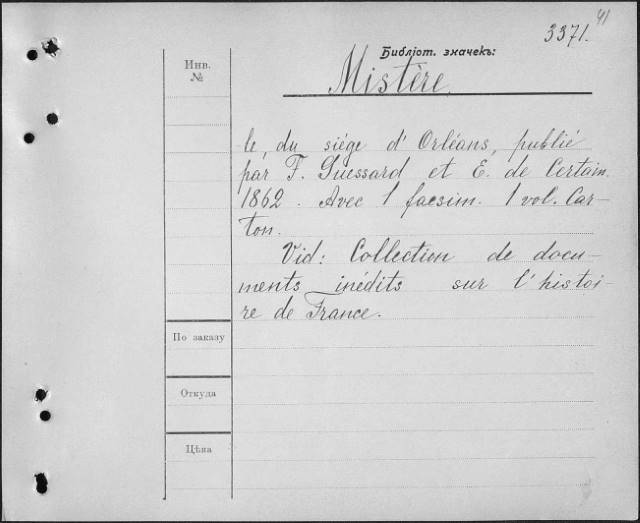 41
3371.
Библіот. значекъ:
Инв.
№
Mistère
le, du siége d'Orléans, publié
par F. Guessard et E. de Certain.
1862. Avec 1 facsim. 1 vol. Car-
ton.
Vid: Collection de docu-
ments inédits sur l'histoi-
re de France.
По заказу
Откуда
Цѣна